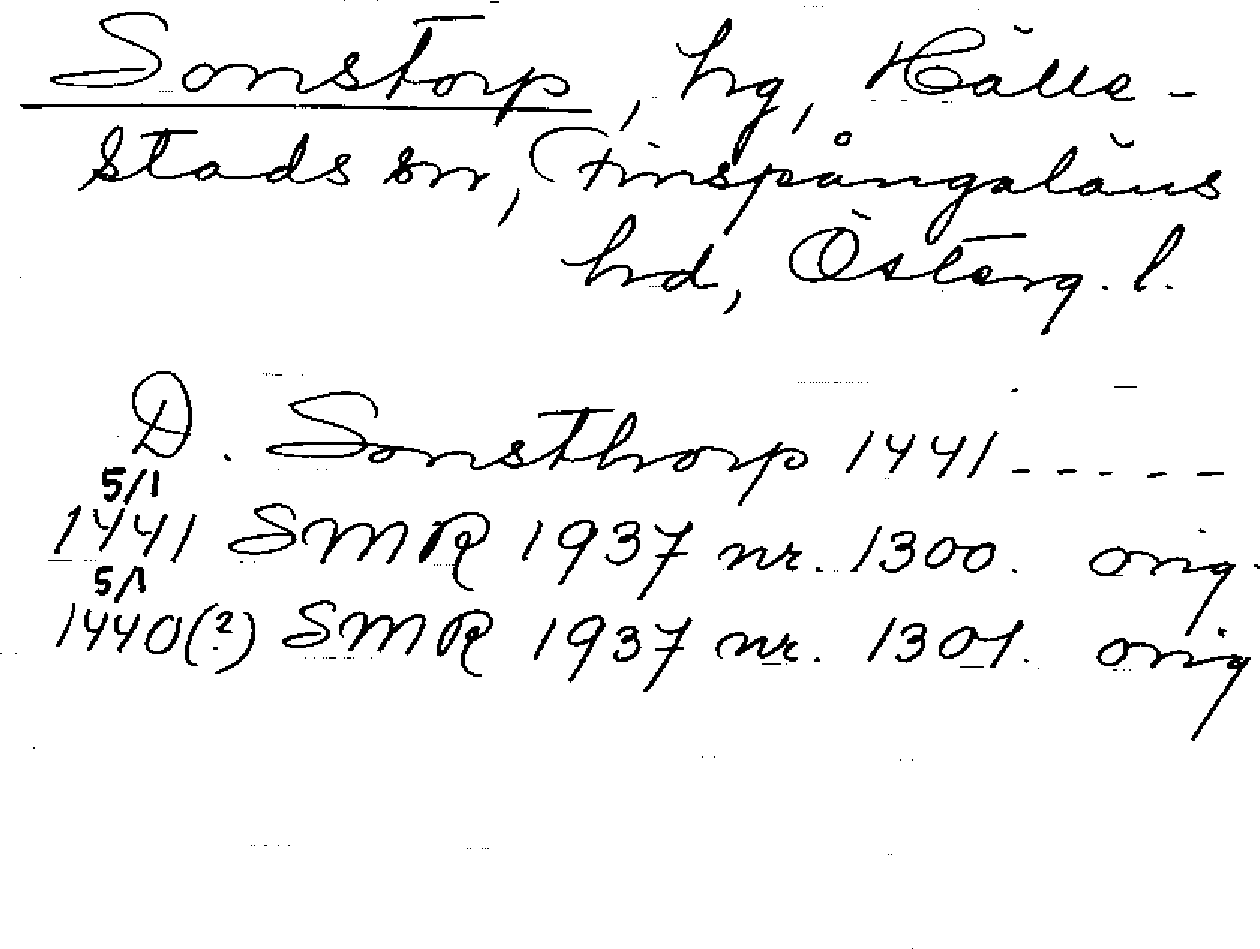 Sonstorp, hg, Hälle-
stads sn, Finspångaläns
hd, Österg. l.
D. Sonsthorp 1441-----
5/1
1441 SMR 1937 nr. 1300. orig.
5/1
1440(?) SMR 1937 nr. 1301. orig